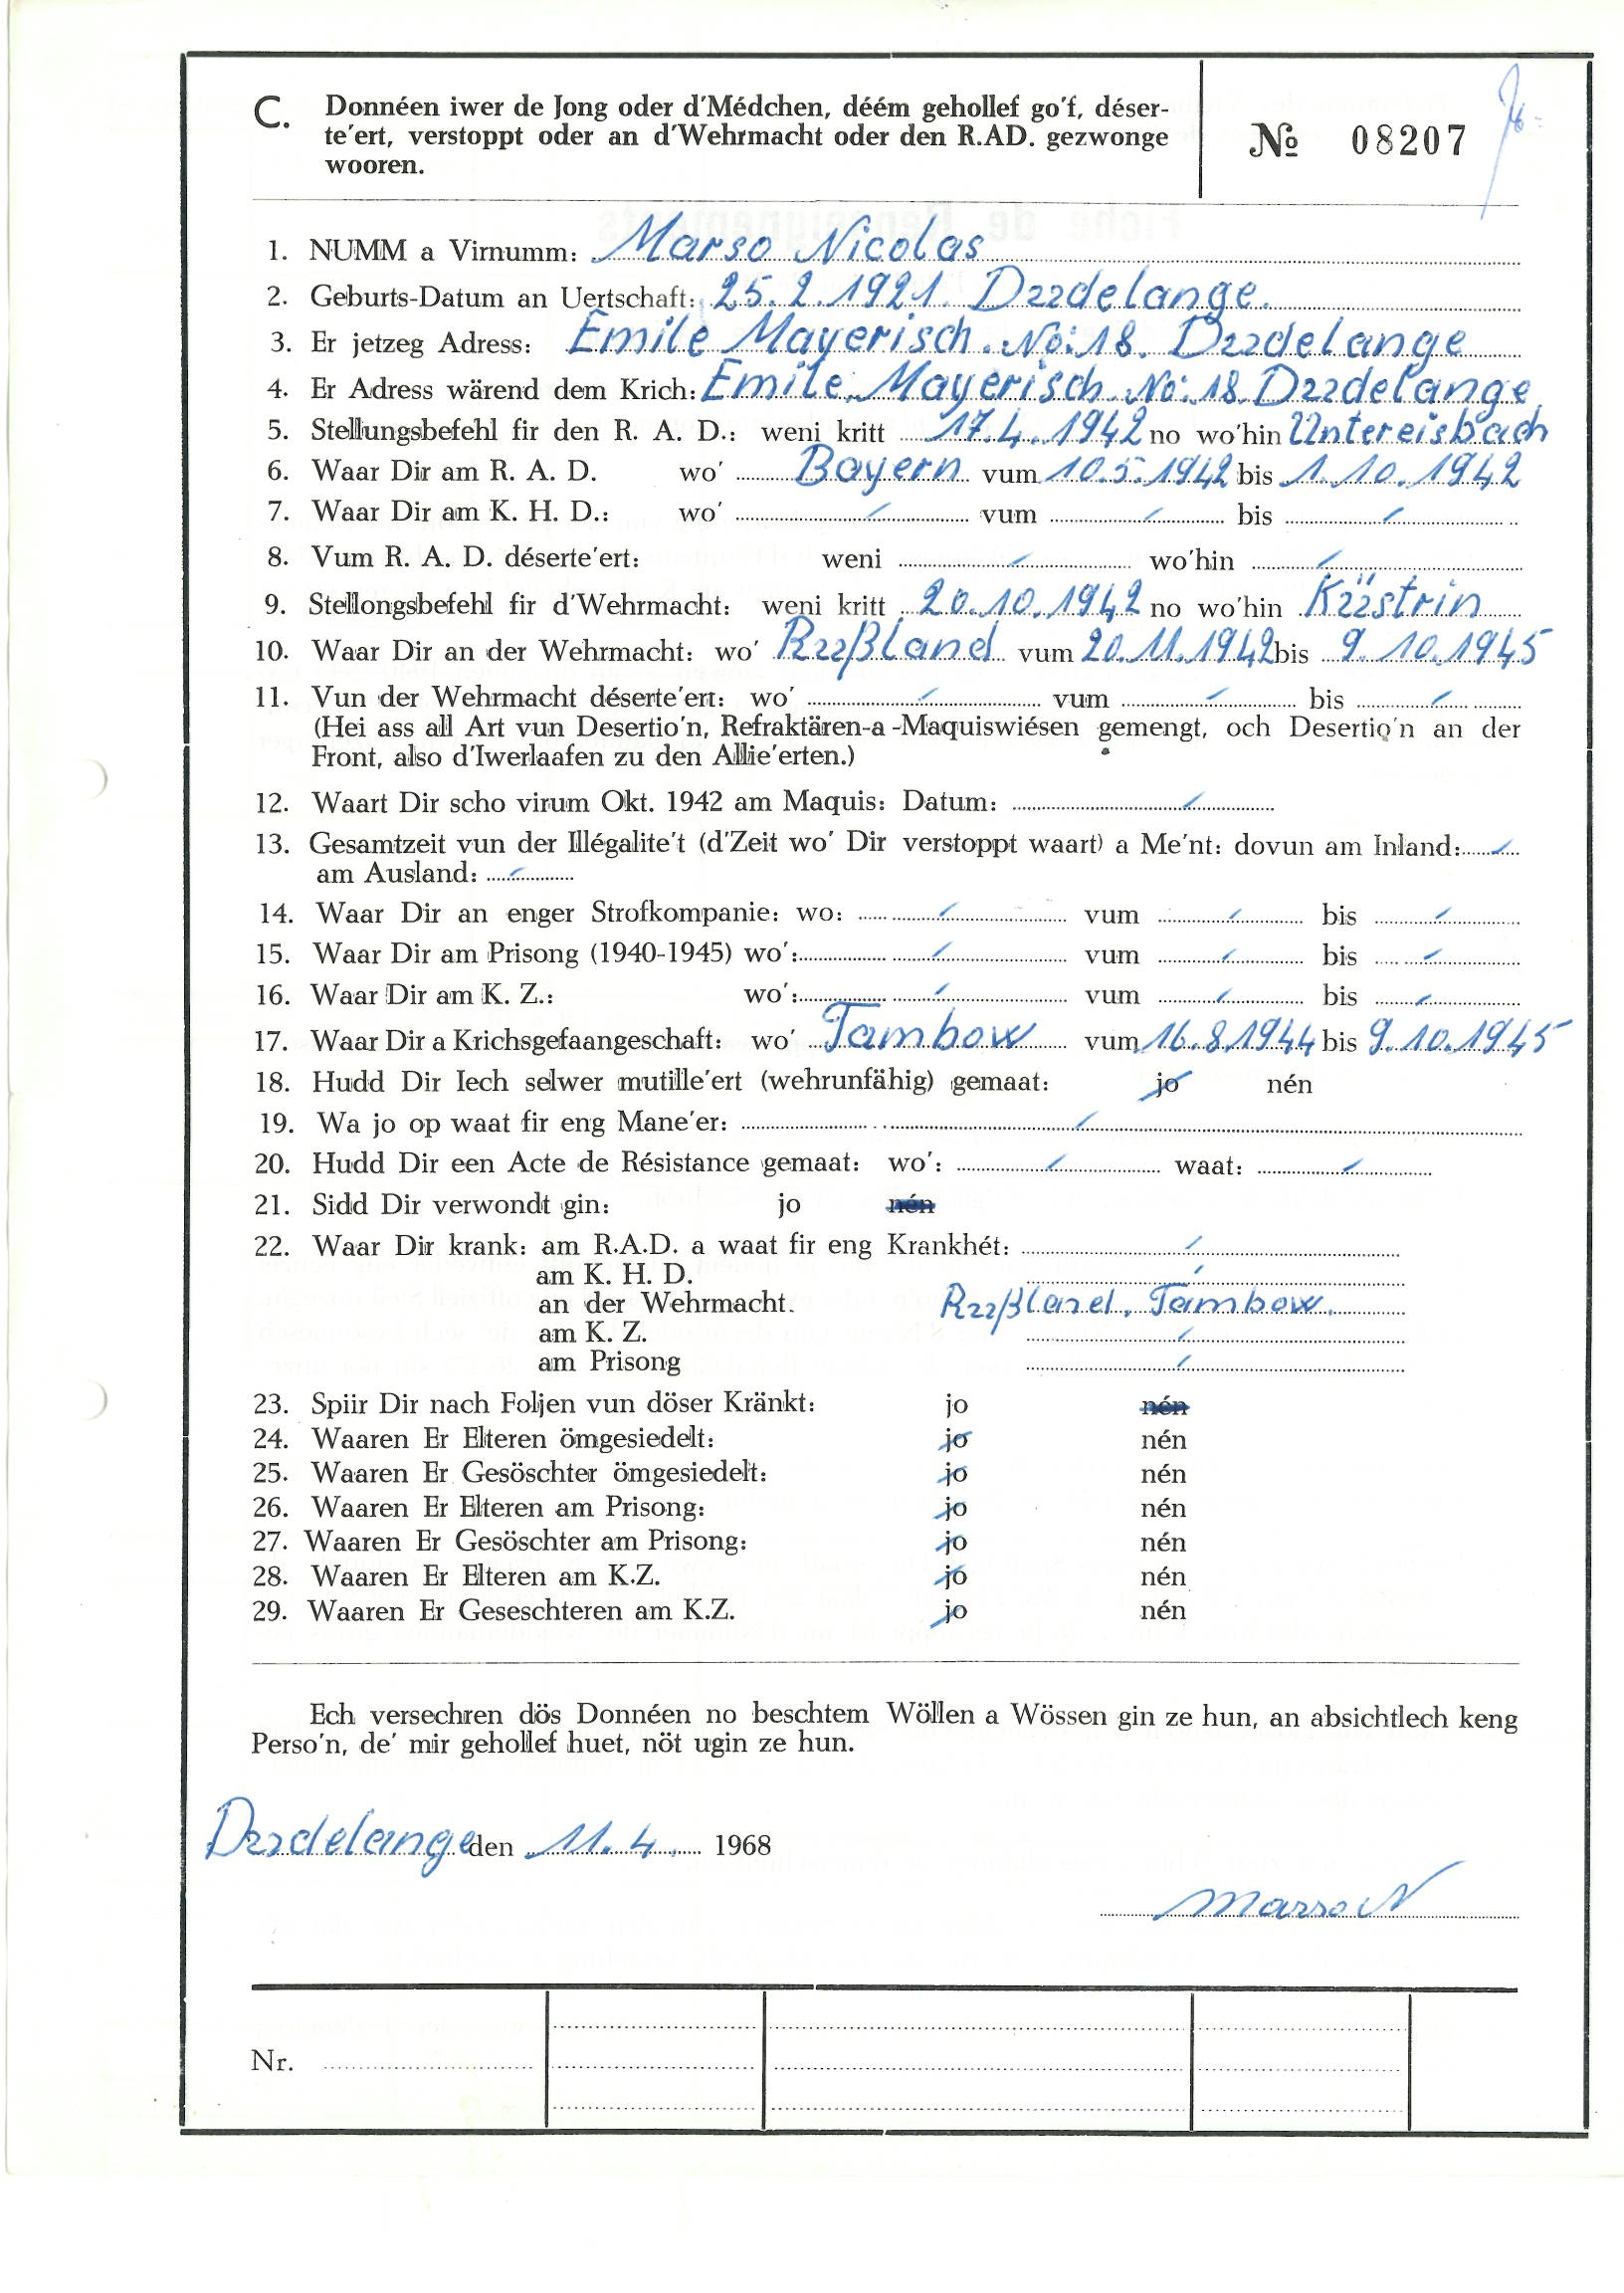 C. Donnéen iwer de Jong oder d'Médchen, déém gehollef go'f, déser-
te'ert, verstoppt oder an d'Wehrmacht oder den R.AD. gezwonge
wooren.
№ 08207
1. NUMM a Virnumm: Marso Nicolas
2. Geburts-Datum an Uertschaft: 25.2.1921. Dudelange.
3. Er jetzeg Adress: Emile Mayerisch. No: 18. Dudelange
4. Er Adress wärend dem Krich: Emile. Mayerisch. No: 18. Dudelange
5. Stellungsbefehl fir den R. A. D.: weni kritt 17.4.1942 no wo'hin Untereisbach
6. Waar Dir am R. A. D. wo' Bayern vum 10.5.1942 bis 1.10.1942
7. Waar Dir am K. H. D.: wo' / vum / bis /
8. Vum R. A. D. déserte'ert: weni / wo'hin /
9. Stellongsbefehl fir d'Wehrmacht: weni kritt 20.10.1942 no wo'hin Küstrin
10. Waar Dir an der Wehrmacht: wo' Rußland vum 20.11.1942 bis 9.10.1945
11. Vun der Wehrmacht déserte'ert: wo' / vum / bis /
(Hei ass all Art vun Desertio'n, Refraktären-a-Maquiswiésen gemengt, och Desertio'n an der
Front, also d'Iwerlaafen zu den Allie'erten.)
12. Waart Dir scho virum Okt. 1942 am Maquis: Datum: /
13. Gesamtzeit vun der Illégalite't (d'Zeit wo' Dir verstoppt waart) a Me'nt: dovun am Inland: /
am Ausland: /
14. Waar Dir an enger Strofkompanie: wo: / vum / bis /
15. Waar Dir am Prisong (1940-1945) wo': / vum / bis /
16. Waar Dir am K. Z.: wo': / vum / bis /
17. Waar Dir a Krichsgefaangeschaft: wo' Tambow vum 16.8.1944 bis 9.10.1945
18. Hudd Dir Iech selwer mutille'ert (wehrunfähig) gemaat: jo nén
19. Wa jo op waat fir eng Mane'er: /
20. Hudd Dir een Acte de Résistance gemaat: wo': / waat: /
21. Sidd Dir verwondt gin: jo nén
22. Waar Dir krank: am R.A.D. a waat fir eng Krankhét: /
am K. H. D. /
an der Wehrmacht. Rußland. Tambow.
am K. Z. /
am Prisong /
23. Spiir Dir nach Foljen vun döser Kränkt: jo nén
24. Waaren Er Elteren ömgesiedelt: jo nén
25. Waaren Er Gesöschter ömgesiedelt: jo nén
26. Waaren Er Elteren am Prisong: jo nén
27. Waaren Er Gesöschter am Prisong: jo nén
28. Waaren Er Elteren am K.Z. jo nén
29. Waaren Er Geseschteren am K.Z. jo nén
Ech versechren dös Donnéen no beschtem Wöllen a Wössen gin ze hun, an absichtlech keng
Perso'n, de' mir gehollef huet, nöt ugin ze hun.
Dudelange den 11.4. 1968
Marso N
Nr.